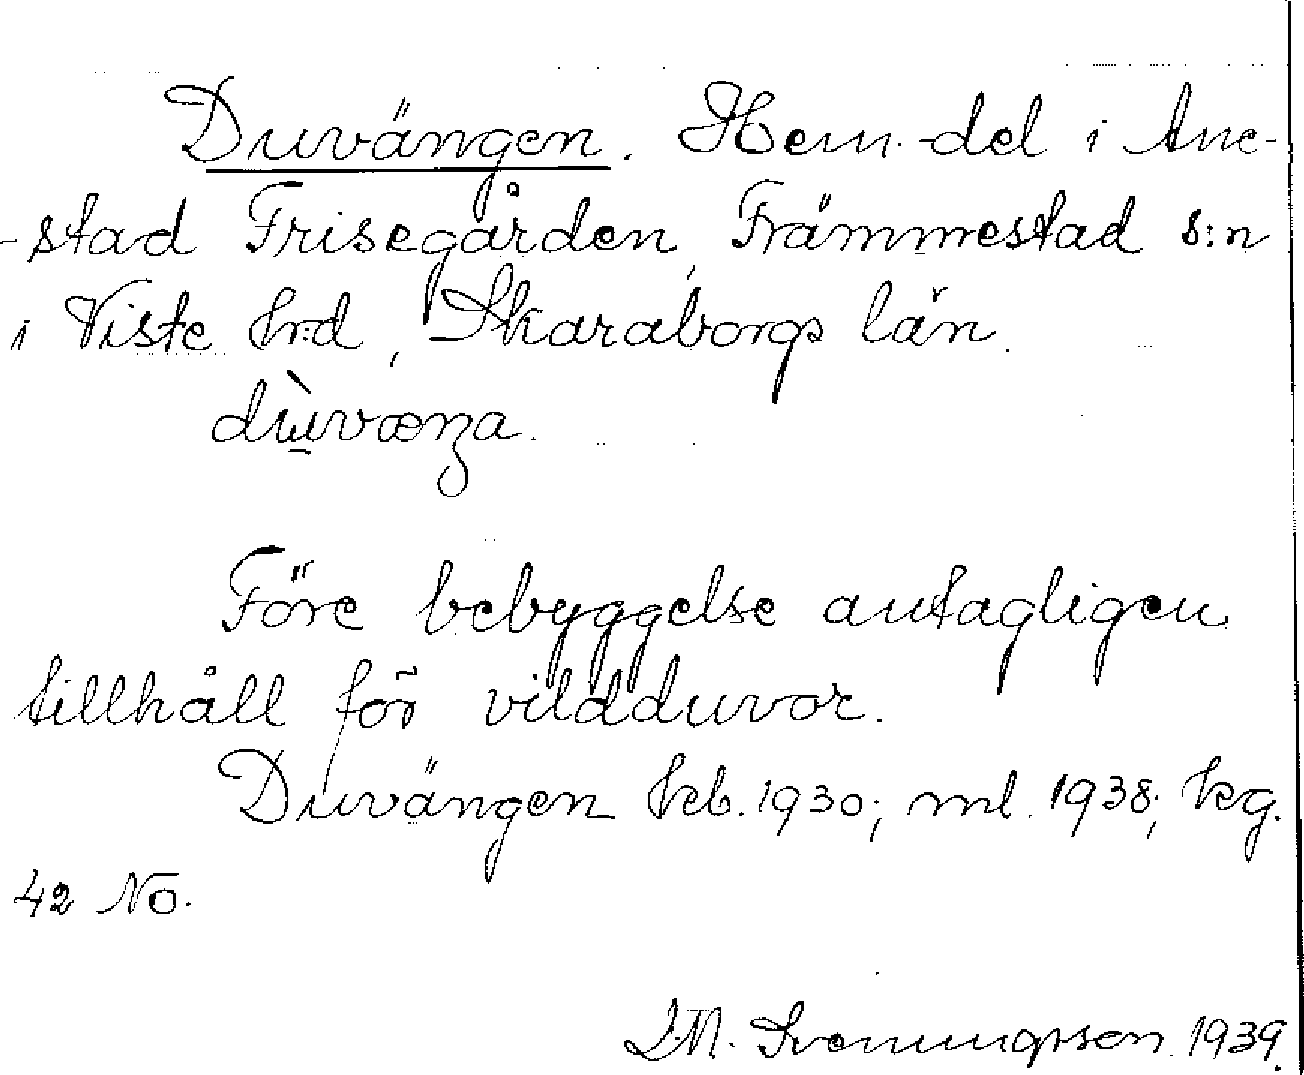 Duvängen. Hem.-del i Ane-
-stad Frisegården, Främmestad s:n
i Viste hrd, Skaraborgs län.
dùvænga.
Före bebyggelse antagligen
tillhåll för vildduvor.
Duvängen kb. 1930; ml. 1938; kg.
42 NO.
Svenungsson. 1939.